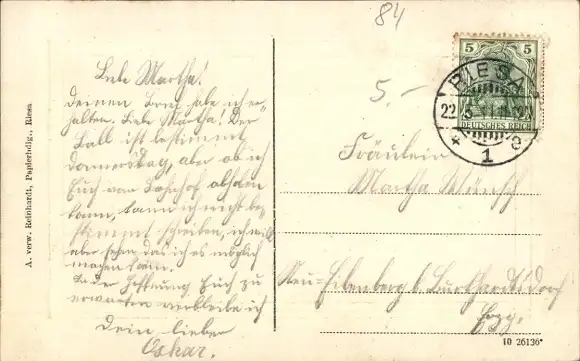 84
5
5
DEUTSCHES REICH
RIESA
22.
1
c
5.-
Liebe Martha!
Deinen Brief habe ich er-
halten. Liebe Martha! Der
Ball ist bestimmt
Donnerstag, aber ob ich
Euch vom Bahnhof abholen
kann, kann ich nicht be-
stimmt schreiben, ich will
aber sehen, das ich es möglich
machen kann.
In der Hoffnung Euch zu
erwarten verbleibe ich
Dein lieber
Oskar.
Fräulein
Martha Wünsch
Neu-Eilenberg b. Burkhardtsdorf
A. verw. Reinhardt, Papierhdlg., Riesa
10 26136*